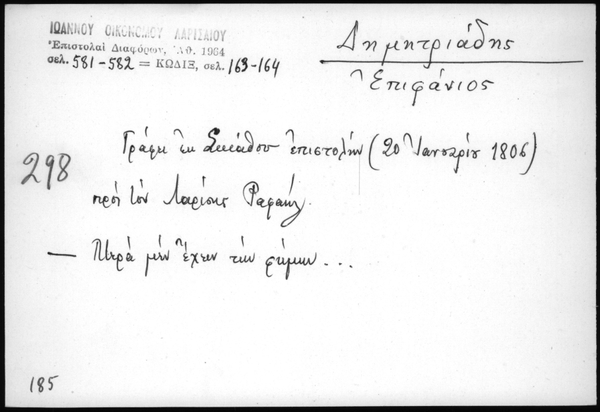 ΙΩΑΝΝΟΥ ΟΙΚΟΝΟΜΟΥ ΛΑΡΙΣΑΙΟΥ
Ἐπιστολαὶ Διαφόρων, Ἀθ. 1964
σελ. 581-582 = ΚΩΔΙΞ, σελ. 163-164
Δημητριάδης
Ἐπιφάνιος
298
Γράφει ἐκ Σκιάθου ἐπιστολήν (20 Ἰανουαρίου 1806)
πρὸς τὸν Λαρίσης Ραφαήλ.
— Πτερά μὲν ἔχειν τὴν φήμην...
185